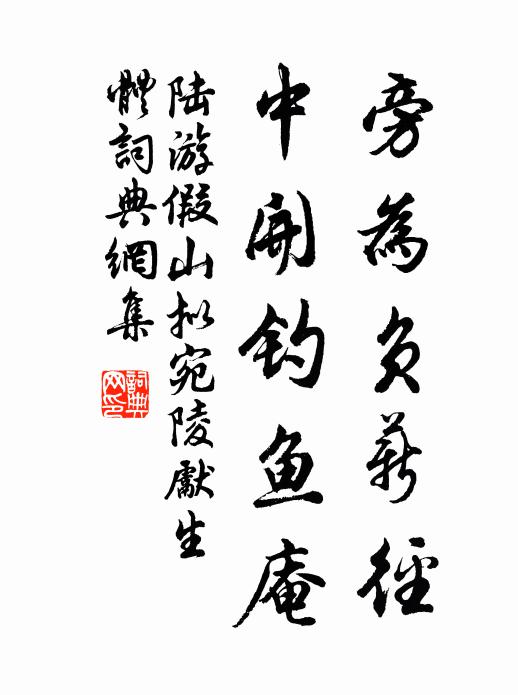 旁為負薪徑
中開釣魚庵
陸游假山拟宛陵獻生
體詞典網集
詞典网印